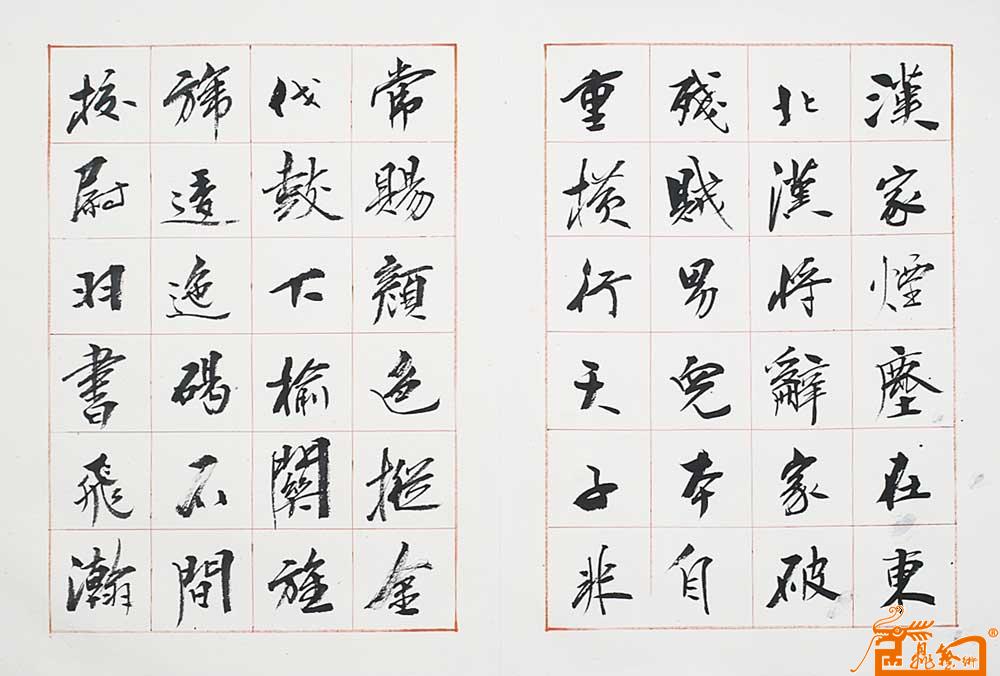 漢家煙塵在東
北漢將辭家破
殘賊男兒本自
重橫行天子非
常賜顏色摐金
伐鼓下榆關旌
旆逶迤碣石間
校尉羽書飛瀚